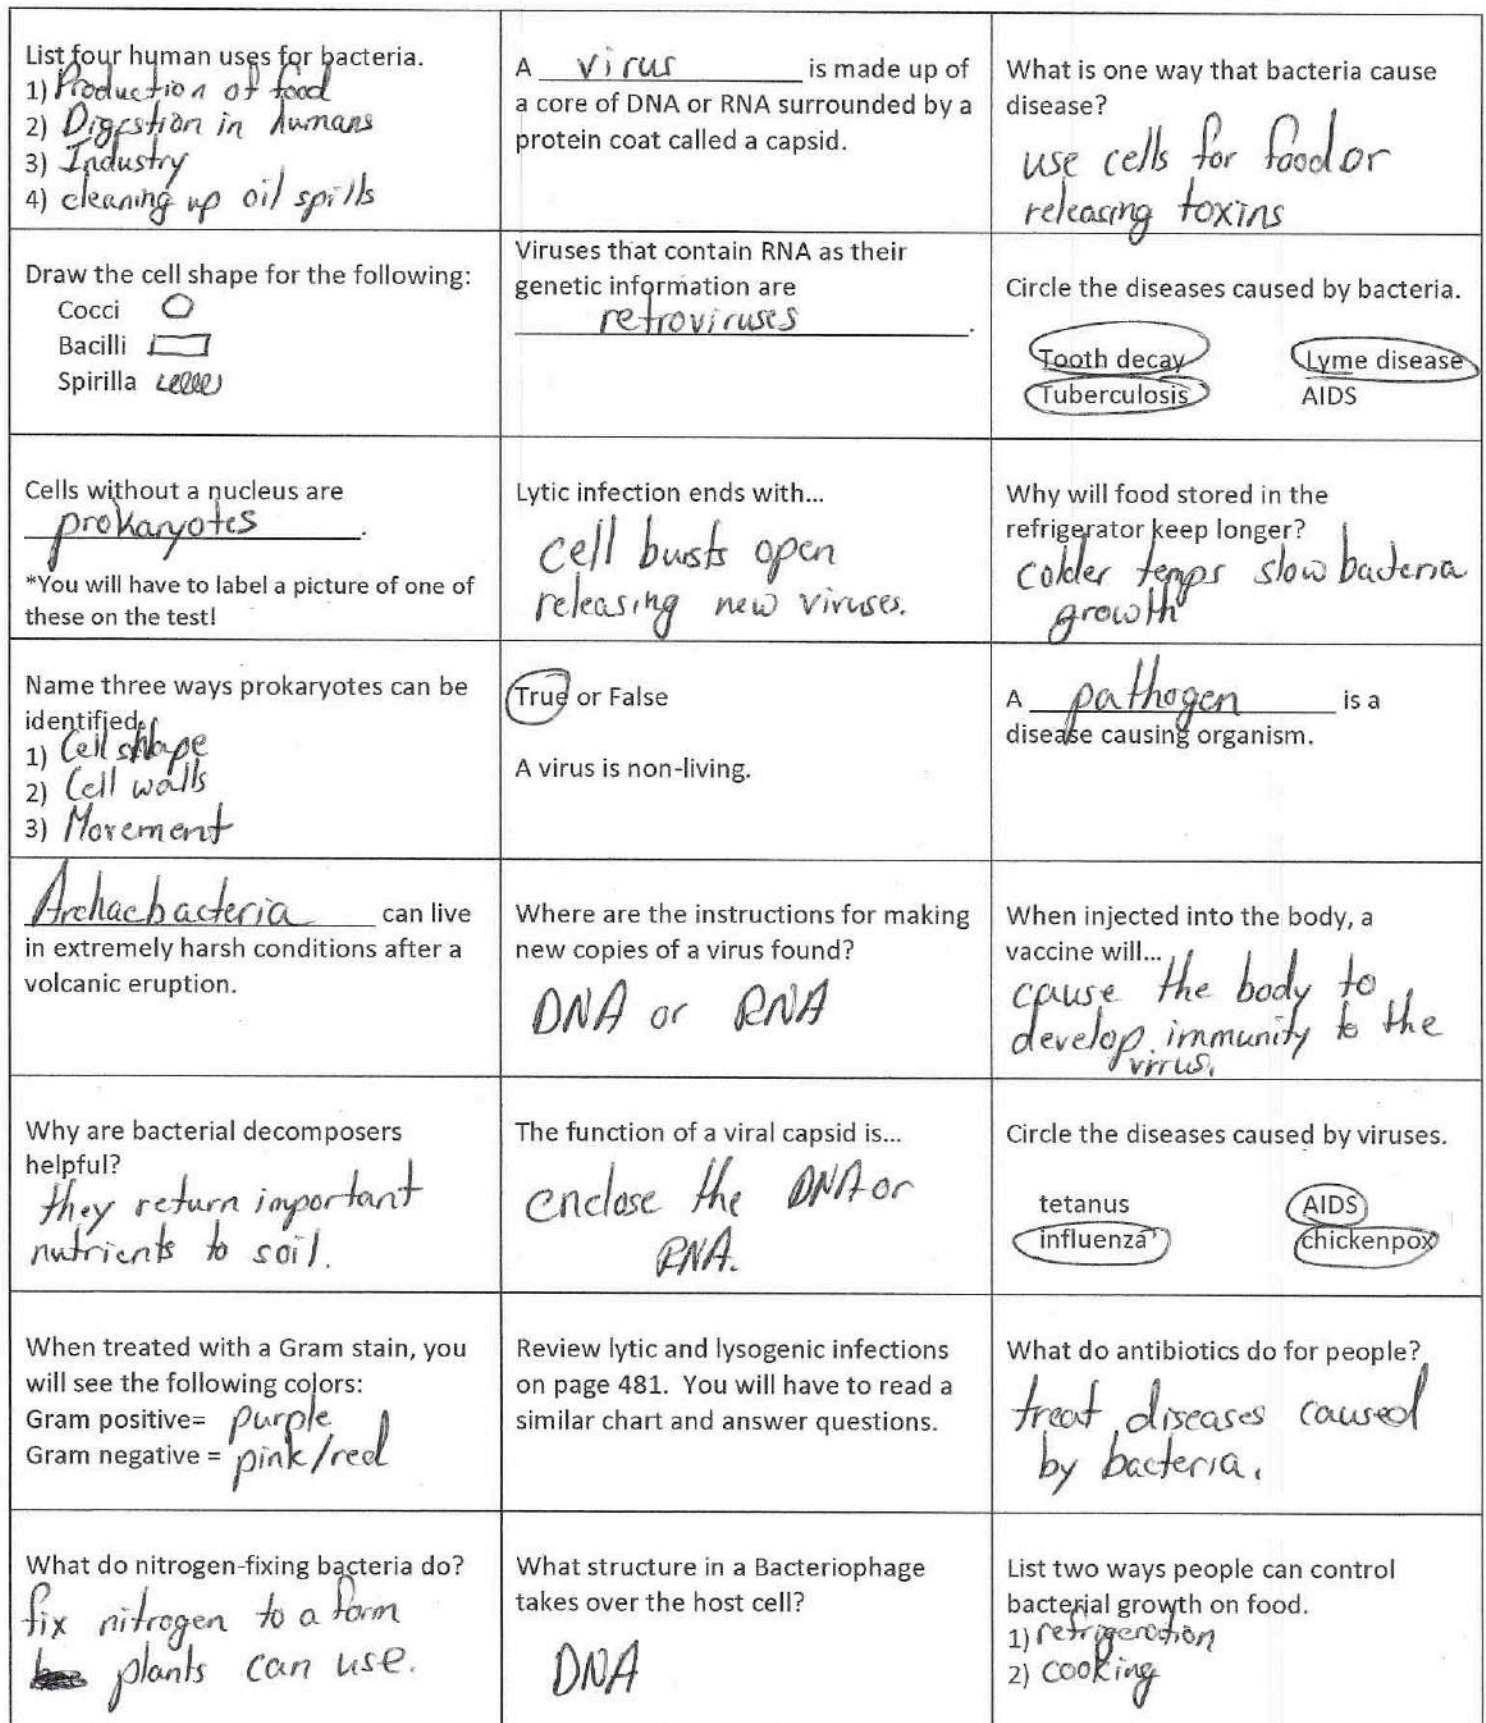 List four human uses for bacteria.
1) Production of food
2) Digestion in humans
3) Industry
4) cleaning up oil spills
A virus is made up of
a core of DNA or RNA surrounded by a
protein coat called a capsid.
What is one way that bacteria cause
disease?
use cells for food or
releasing toxins
Draw the cell shape for the following:
Cocci
Bacilli
Spirilla
Viruses that contain RNA as their
genetic information are
retroviruses.
Circle the diseases caused by bacteria.
Tooth decay Lyme disease
Tuberculosis AIDS
Cells without a nucleus are
prokaryotes.
*You will have to label a picture of one of
these on the test!
Lytic infection ends with...
cell bursts open
releasing new viruses.
Why will food stored in the
refrigerator keep longer?
colder temps slow bacteria
growth
Name three ways prokaryotes can be
identified.
1) Cell shape
2) Cell walls
3) Movement
True or False
A virus is non-living.
A pathogen is a
disease causing organism.
Archaebacteria can live
in extremely harsh conditions after a
volcanic eruption.
Where are the instructions for making
new copies of a virus found?
DNA or RNA
When injected into the body, a
vaccine will...
cause the body to
develop immunity to the
virus.
Why are bacterial decomposers
helpful?
they return important
nutrients to soil.
The function of a viral capsid is...
enclose the DNA or
RNA.
Circle the diseases caused by viruses.
tetanus AIDS
influenza chickenpox
When treated with a Gram stain, you
will see the following colors:
Gram positive= purple
Gram negative = pink/red
Review lytic and lysogenic infections
on page 481. You will have to read a
similar chart and answer questions.
What do antibiotics do for people?
treat diseases caused
by bacteria.
What do nitrogen-fixing bacteria do?
fix nitrogen to a form
plants can use.
What structure in a Bacteriophage
takes over the host cell?
DNA
List two ways people can control
bacterial growth on food.
1) refrigeration
2) cooking